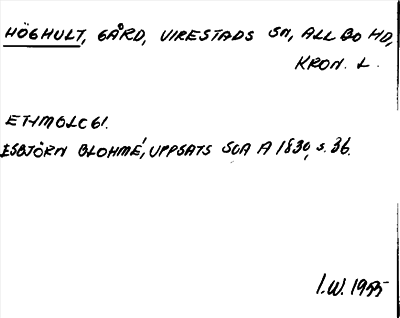 HÖGHULT, GÅRD, VIRESTADS SN, ALLBO HD,
KRON. L.
ETYMOLOGI.
ESBJÖRN BLOHMÉ, UPPSATS SOA A 1830, s. 36.
I.W. 1955